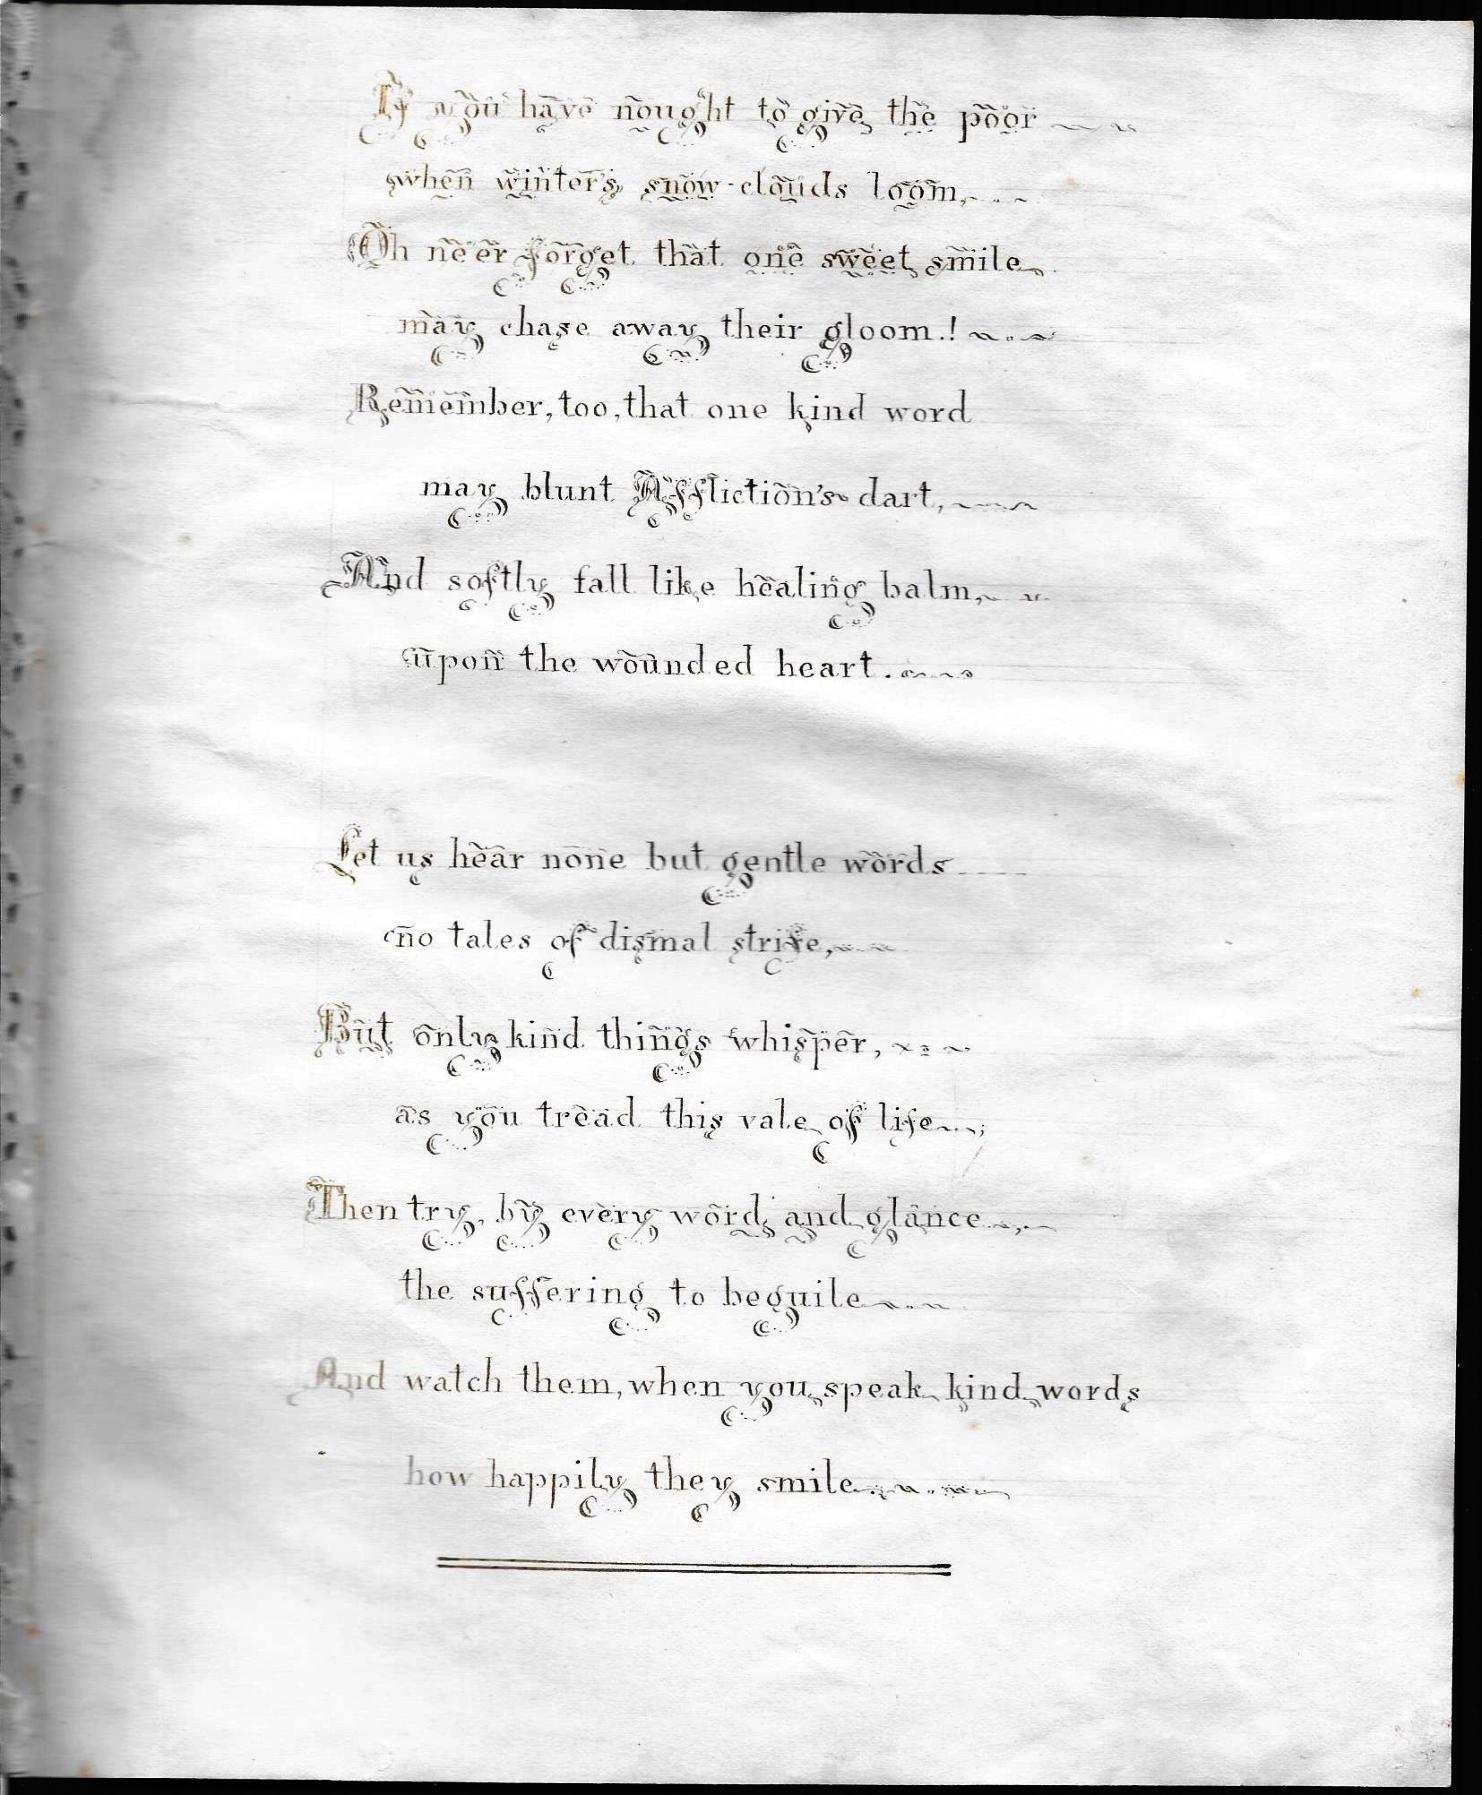 If you have nought to give the poor
when winter's snow-clouds loom,
Oh ne'er forget that one sweet smile
may chase away their gloom.!
Remember, too, that one kind word
may blunt Affliction's dart,
And softly fall like healing balm,
upon the wounded heart.
Let us hear none but gentle words
no tales of dismal strife,
But only kind things whisper,
as you tread this vale of life;
Then try, by every word and glance,
the suffering to beguile
And watch them, when you speak kind words
how happily they smile.